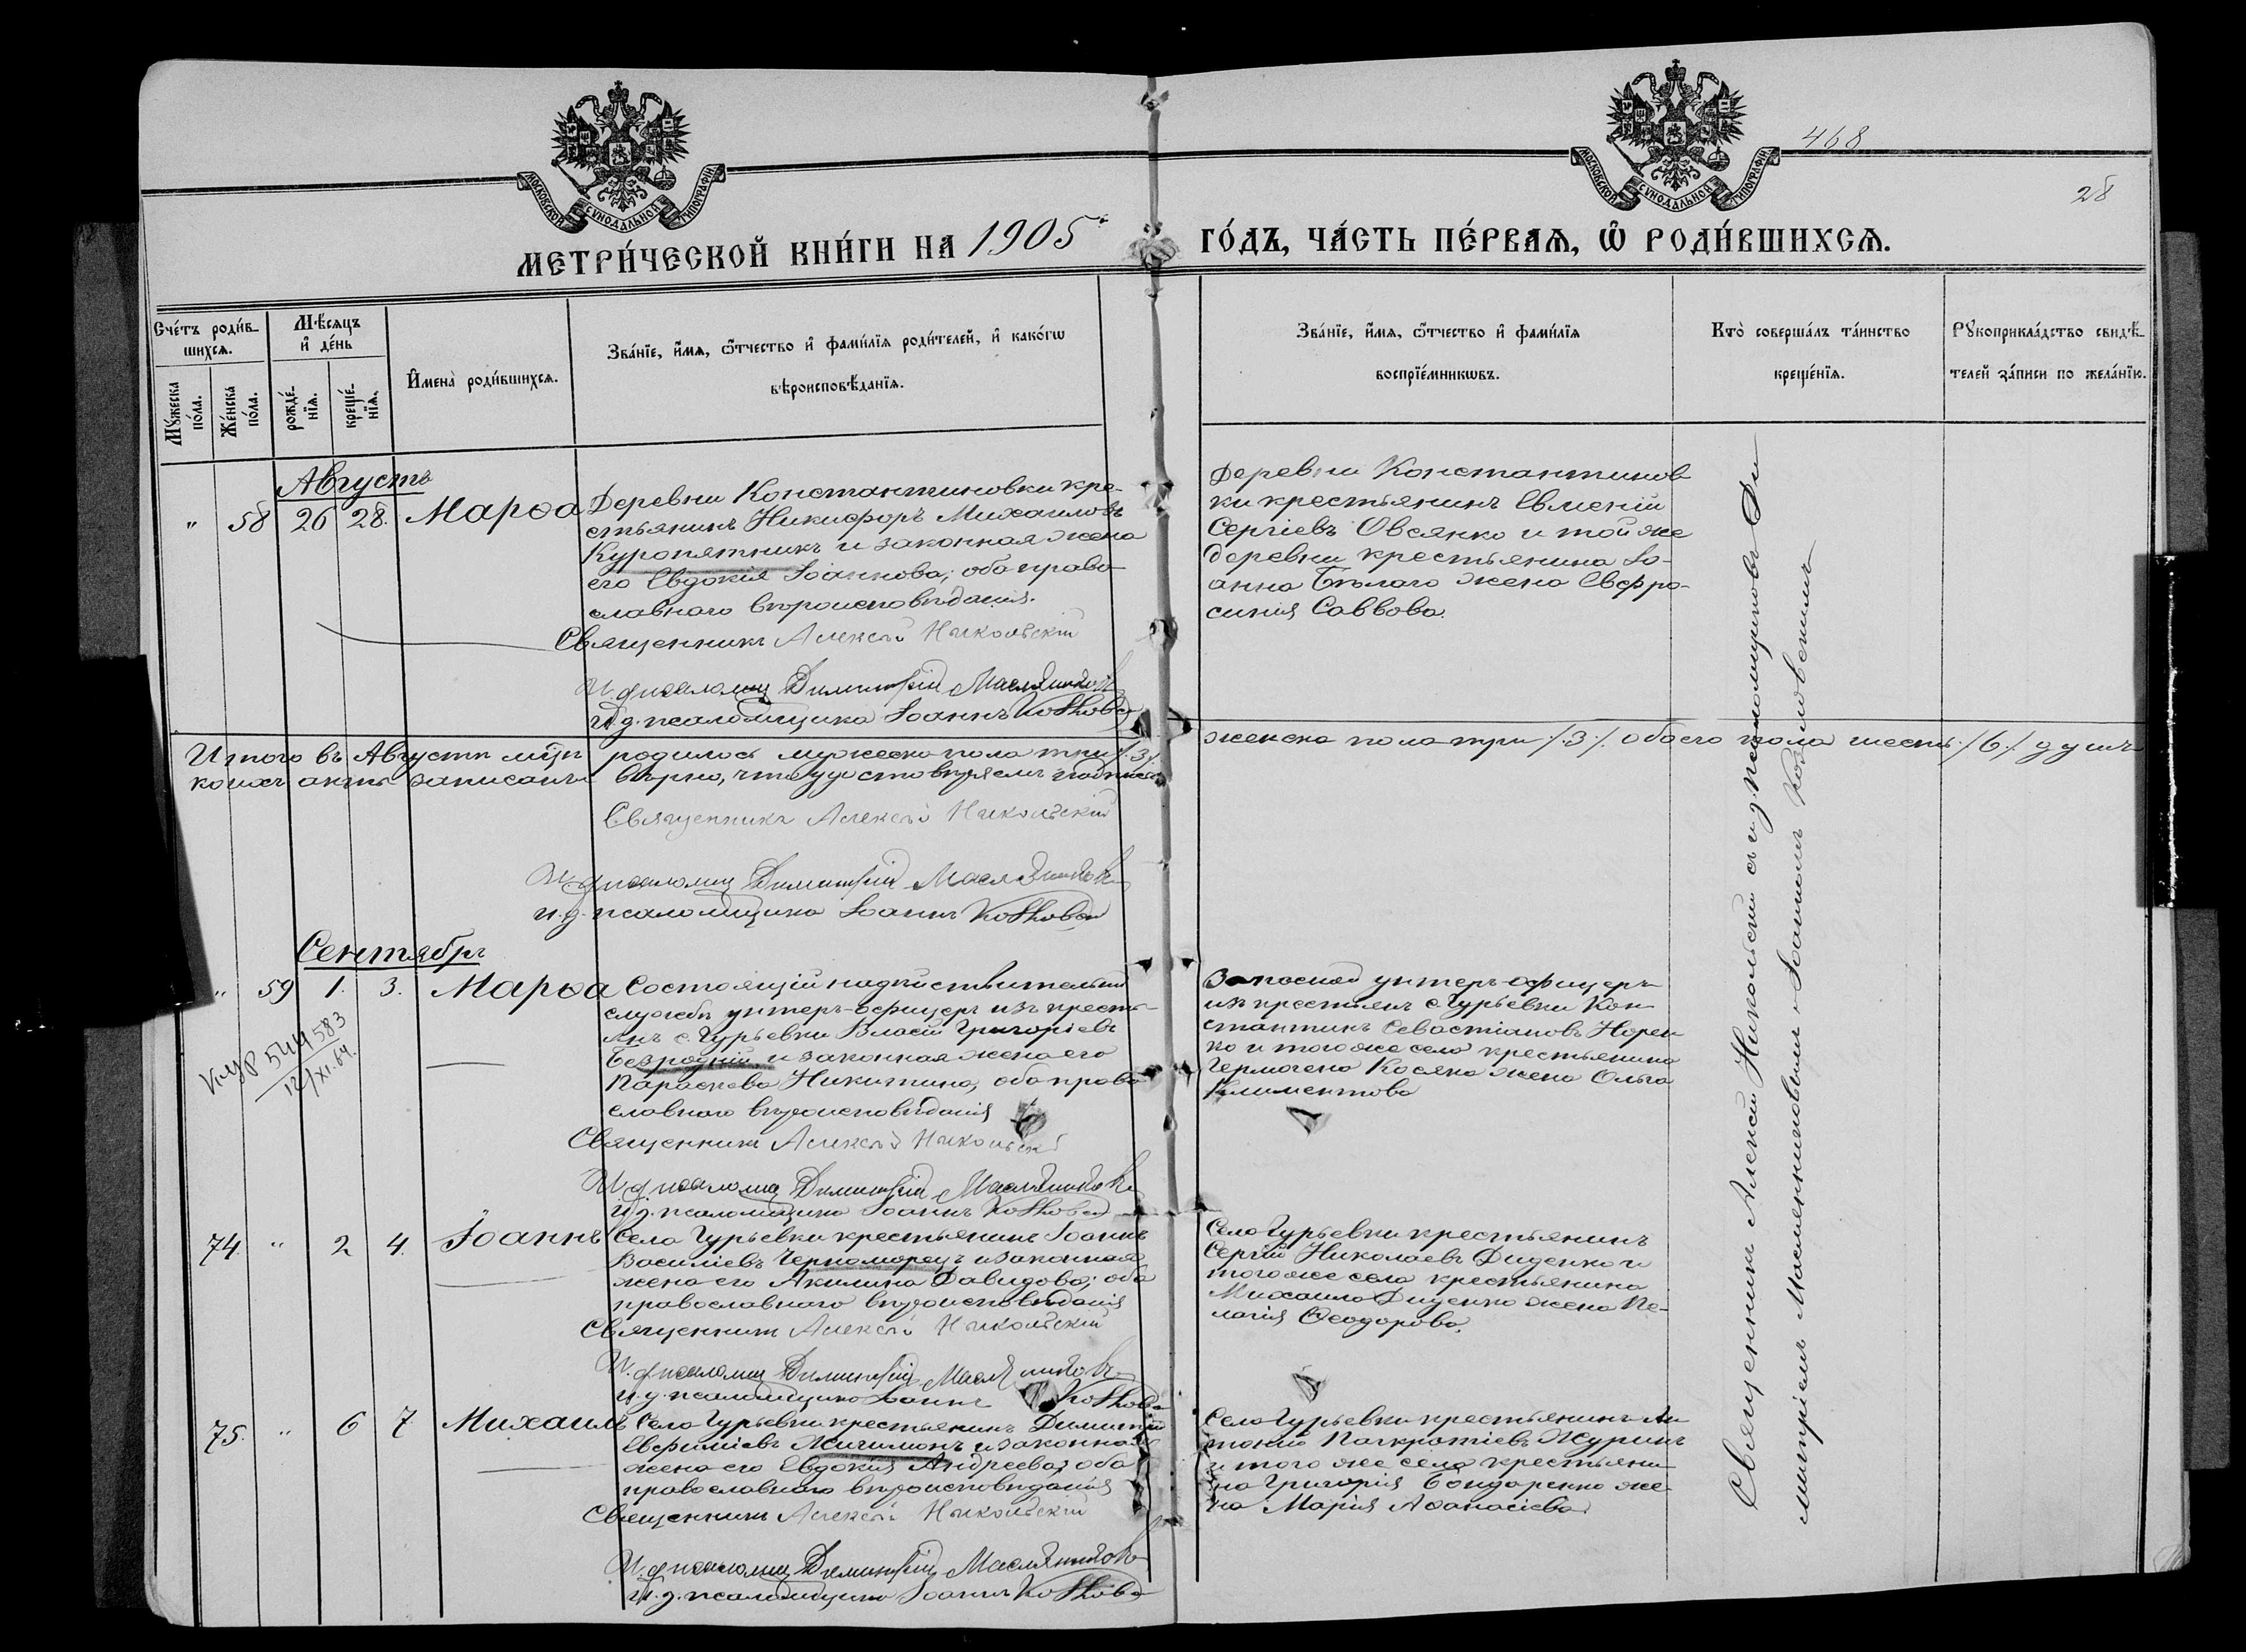 МОСКОВСКОЙ СѴНОДАЛЬНОЙ ТИПОГРАФІИ
МОСКОВСКОЙ СѴНОДАЛЬНОЙ ТИПОГРАФІИ
468
28
МЕТРИ́ЧЕСКОЙ КНИ́ГИ НА 1905
ГО́ДЪ, ЧА́СТЬ ПЕ́РВАѦ, Ѡ҆ РОДИ́ВШИХСѦ.
Сче́тъ роди́в-
шихсѧ.
Мꙋ́жеска по́ла.
Же́нска по́ла.
Мѣ́сѧцъ
и҆ де́нь
рожде́-
нїѧ.
креще́-
нїѧ.
И҆мена̀ роди́вшихсѧ.
Зва́нїе, и҆́мѧ, ѻ҆́тчество и҆ фами́лїѧ роди́телей, и҆ како́гѡ
вѣроисповѣ́данїѧ.
Зва́нїе, и҆́мѧ, ѻ҆́тчество и҆ фами́лїѧ
воспрїе́мникѡвъ.
Кто̀ соверша́лъ та́инство
креще́нїѧ.
Рꙋкоприкла́дство свидѣ́-
телей за́писи по жела́нїю.
Августъ
" 58 26 28. Марѳа
Деревни Константиновки кре-
стьянинъ Никифоръ Михаиловъ
Куропятникъ и законная жена
его Евдокія Іоаннова; оба право-
славнаго вѣроисповѣданія.
Священникъ Алексѣй Никольскій
И. д. псаломщ Димитрій Масленниковъ
И. д. псаломщика Іоаннъ
Деревни Константинов
ки крестьянинъ Евмений
Сергіевъ Овсянко и той же
деревни крестьянина Іо-
анна Бѣлаго жена Евфро-
синія Саввова.
Итого въ Августѣ мцѣ родилось мужеска пола три /3/
женска пола три /3/ обоего пола шесть /6/ душъ
коихъ актъ записанъ вѣрно, что удостовѣряемъ подписью
Священникъ Алексѣй Никольскій
И. д. псаломщ Димитрій Масленниковъ
и. д. псаломщика Іоаннъ
Сентябрь
" 59 1. 3. Марѳа
Состоящій на дѣйствительной
службѣ унтеръ-офицеръ изъ кресть-
янъ с. Гурьевки Власій Григоріевъ
Безродній и законная жена его
Параскева Никитина, оба право
славнаго вѣроисповѣданія
Священникъ Алексѣй Никольскій
И. д. псаломщ Димитрій Масленниковъ
И. д. псаломщика Іоаннъ
583
12/XI.64.
Запасной унтеръ-офицеръ
изъ крестьянъ с. Гурьевки Кон-
стантинъ Севастіановъ Норен-
ко и того же села крестьянина
Гермогена Косяка жена Ольга
Климентова
74 " 2 4. Іоаннъ
Села Гурьевки крестьянинъ Іоаннъ
Василіевъ Черноморецъ и законная
жена его Акилина Давидова; оба
православнаго вѣроисповѣданія
Священникъ Алексѣй Никольскій
И. д. псаломщ Димитрій Масленниковъ
и. д. псаломщика Іоаннъ
Села Гурьевки крестьянинъ
Сергій Николаевъ Диденко и
того же села крестьянина
Михаила Диденко жена Пе-
лагія Ѳеодорова.
75. " 6 7 Михаилъ
Села Гурьевки крестьянинъ Димитрій
Евфиміевъ Жигимонъ и законная
жена его Евдокія Андреева; оба
православнаго вѣроисповѣданія
Священникъ Алексѣй Никольскій
И. д. псаломщ Димитрій Масленниковъ
И. д. псаломщика Іоаннъ
Села Гурьевки крестьянинъ Ан
тоній Панкратіевъ Журинъ
и того же села крестьяни-
на Григорія Бондаренко же-
на Марія Аѳанасіева
Священникъ Алексѣй Никольскій съ и. д. псаломщиковъ Ди
митріемъ Масленниковымъ и Іоанномъ